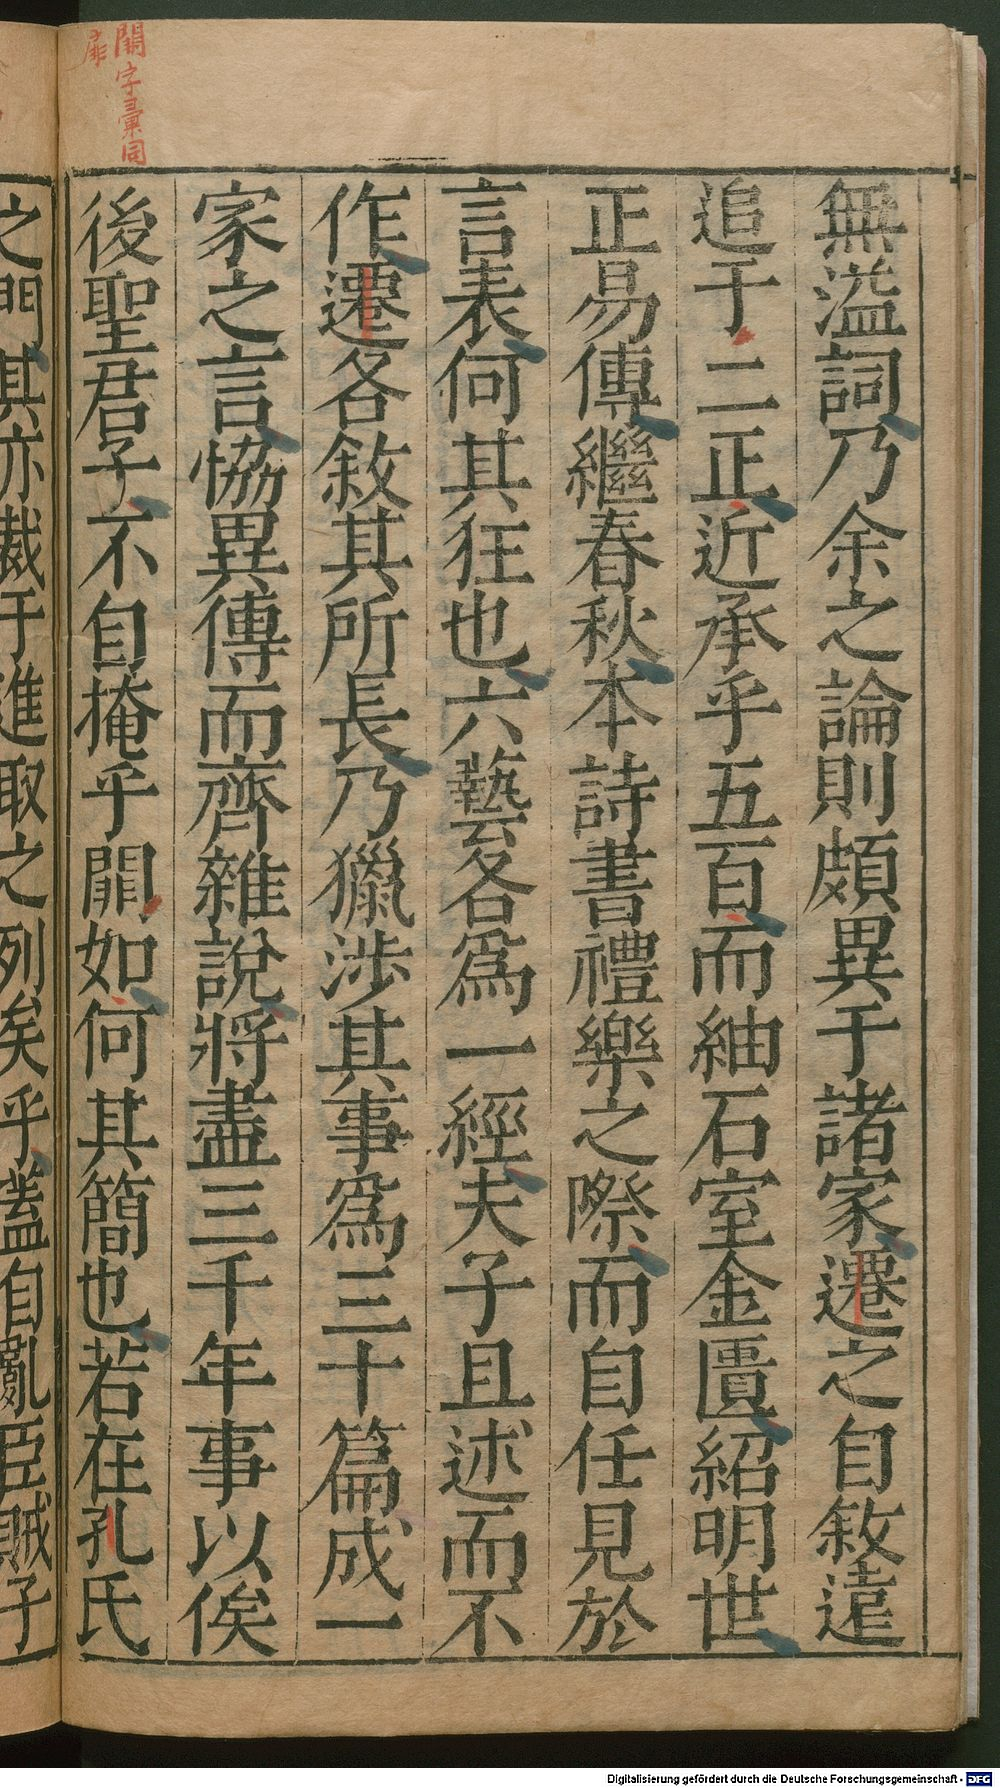 字彙同
扉
無溢詞乃余之論則頗異于諸家遷之自敘遠
追于二正近承乎五百而紬石室金匱紹明世
正易傳繼春秋本詩書禮樂之際而自任見於
言表何其狂也六藝各爲一經夫子且述而不
作遷各敘其所長乃獵涉其事爲三十篇成一
家之言恊異傳而齊雜說將盡三千年事以俟
後聖君子不自掩乎如何其簡也若在孔氏
之門其亦裁于進取之列矣乎蓋自亂臣賊子
Digitalisierung gefördert durch die Deutsche Forschungsgemeinschaft - DFG